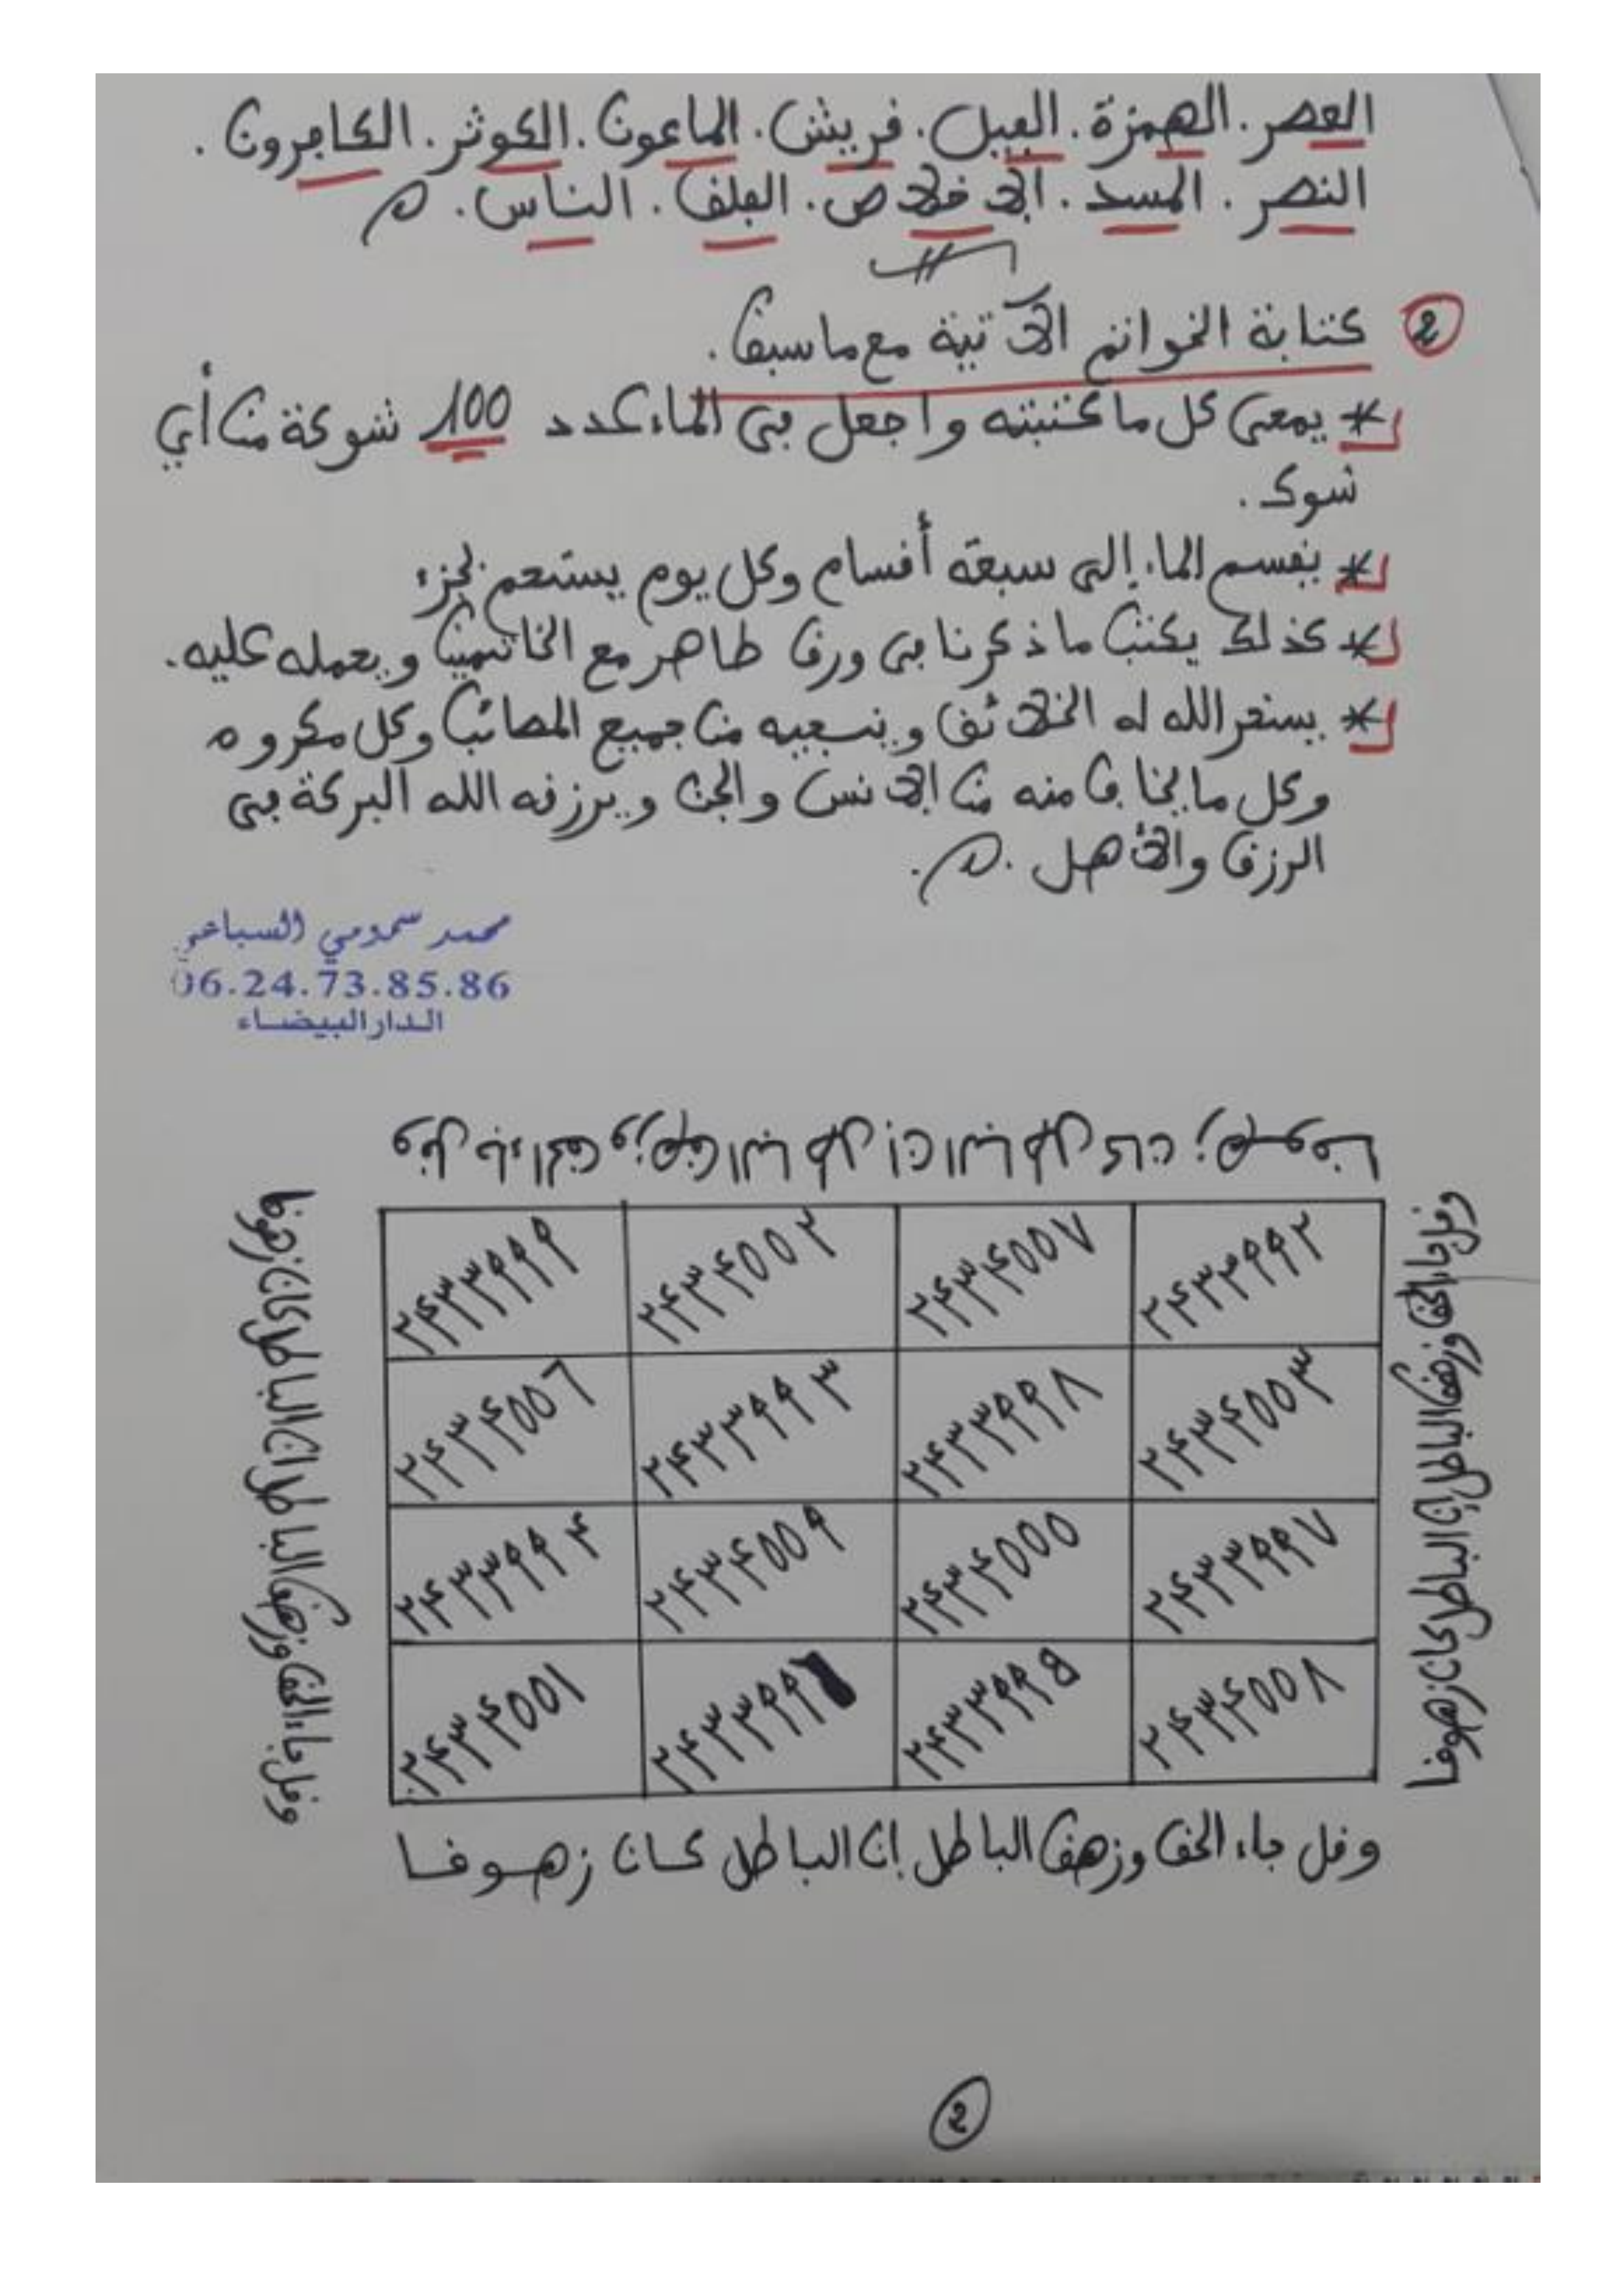 العصر. الهمزة. الفيل. قريش. الماعون. الكوثر. الكافرون.
النصر. المسد. الإخلاص. الفلق. الناس.
2 كتابة الخواتم الآتية مع ما سبق.
* يمحى كل ما كتبته واجعل في الماء عدد 100 شوكة من أي
شوك.
* يقسم الماء إلى سبعة أقسام وكل يوم يستحم بجزء
* كذلك يكتب ما ذكرنا في ورق طاهر مع الخاتمين ويحمله عليه.
* يسخر الله له الخلائق وينجيه من جميع المصائب وكل مكروه
وكل ما يخاف منه من الإنس والجن ويرزقه الله البركة في
الرزق والأهل.
محمد سمومي السباعي
06.24.73.85.86
الدار البيضاء
٢٤٣٣٩٩٢ ٢٤٣٤٥٥٧ ٢٤٣٤٥٥٢ ٢٤٣٣٩٩٩
٢٤٣٤٥٥٣ ٢٤٣٣٩٩٨ ٢٤٣٣٩٩٣ ٢٤٣٤٥٥٦
٢٤٣٣٩٩٧ ٢٤٣٤٥٥٥ ٢٤٣٤٥٥٩ ٢٤٣٣٩٩٤
٢٤٣٤٥٥٨ ٢٤٣٣٩٩٥ ٢٤٣٤٥٥١
وقل جاء الحق وزهق الباطل إن الباطل كان زهوقا
وقل جاء الحق وزهق الباطل إن الباطل كان زهوقا
وقل جاء الحق وزهق الباطل إن الباطل كان زهوقا
2